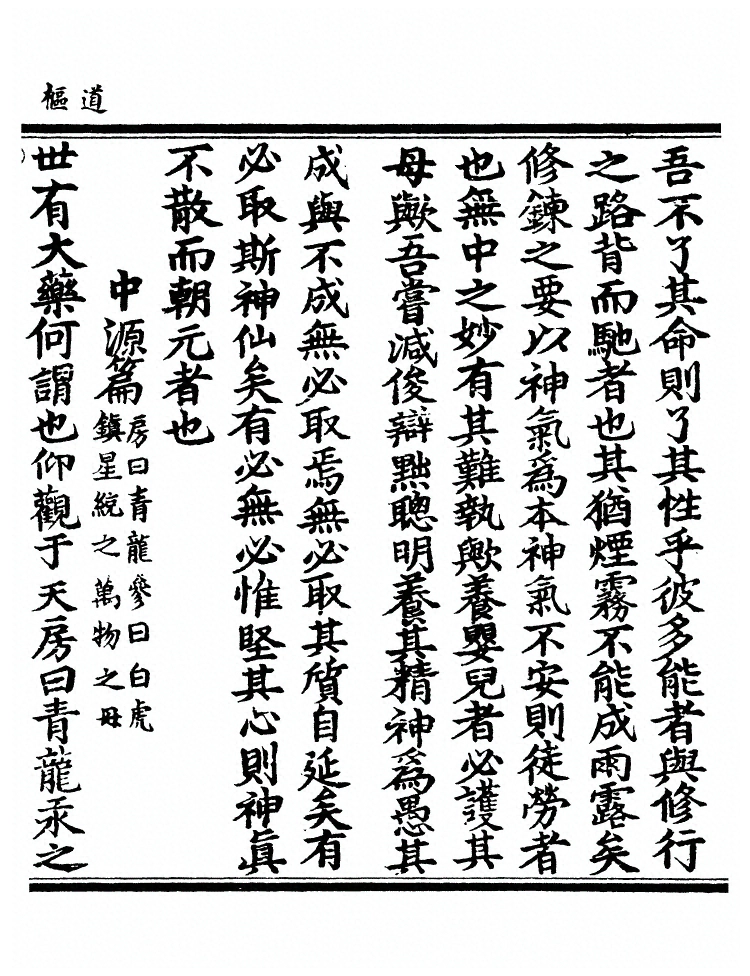 道樞
吾不了其命則了其性乎彼多能者與修行
之路背而馳者也其猶煙霧不能成雨露矣
修鍊之要以神氣爲本神氣不安則徒勞者
也無中之妙有其難執歟養嬰兒者必護其
母歟吾嘗減俊辯黜聰明養其精神爲愚其
成與不成無必取焉無必取其質自延矣有
必取斯神仙矣有必無必惟堅其心則神眞
不散而朝元者也
中源篇
房曰青龍參曰白虎
鎮星統之萬物之母
世有大藥何謂也仰觀于天房曰青龍汞之